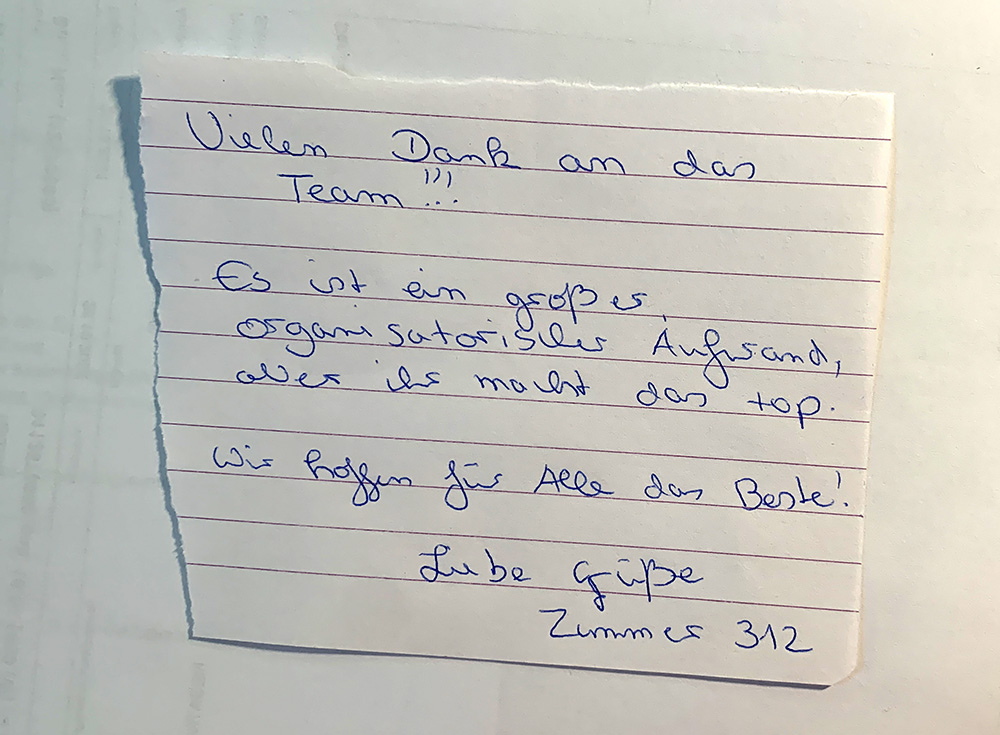 Vielen Dank an das
Team!!!
Es ist ein großer
organisatorischer Aufwand,
aber ihr macht das top.
Wir hoffen für Alle das Beste!
Liebe Grüße
Zimmer 312